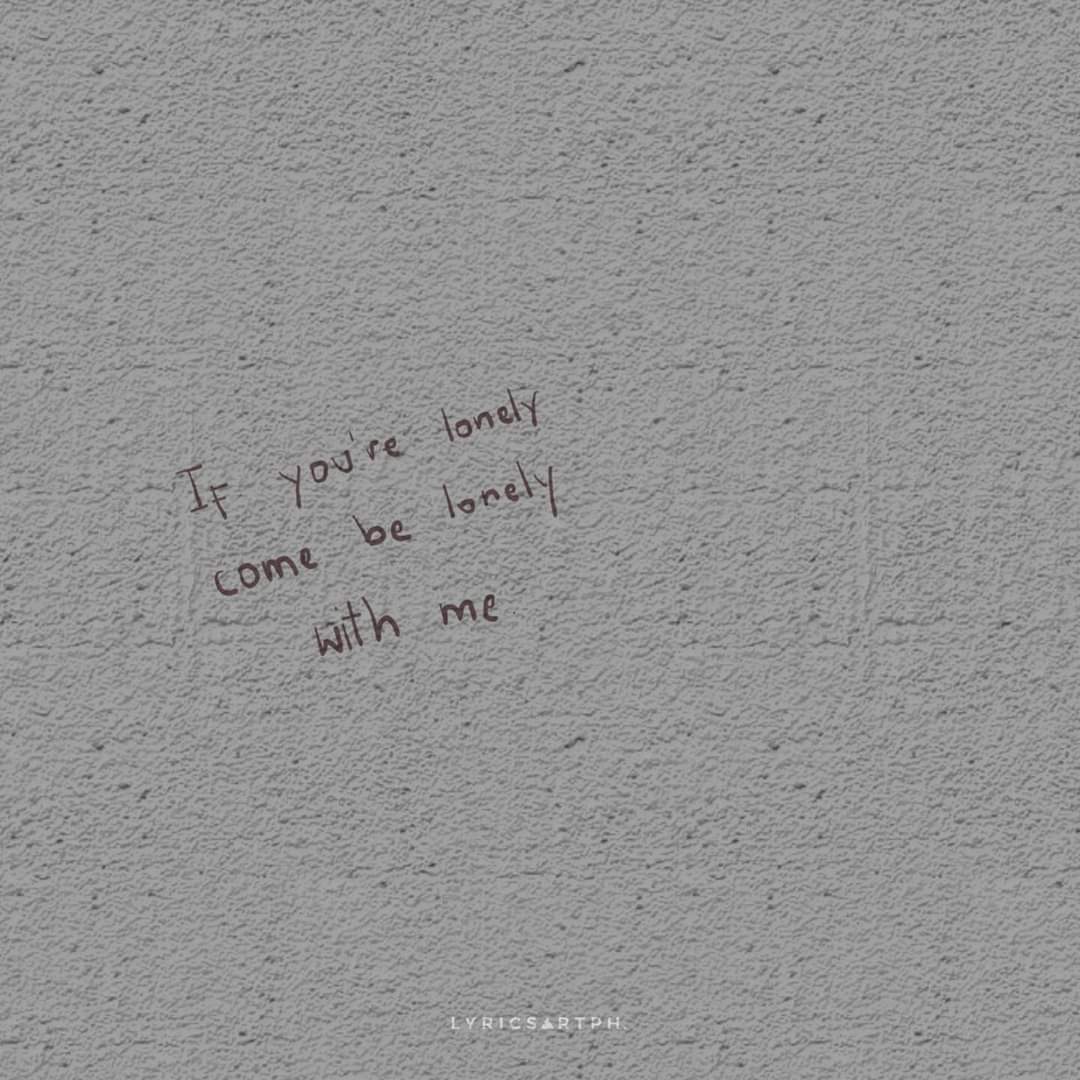 If you're lonely
come be lonely
with me
LYRICSARTPH.